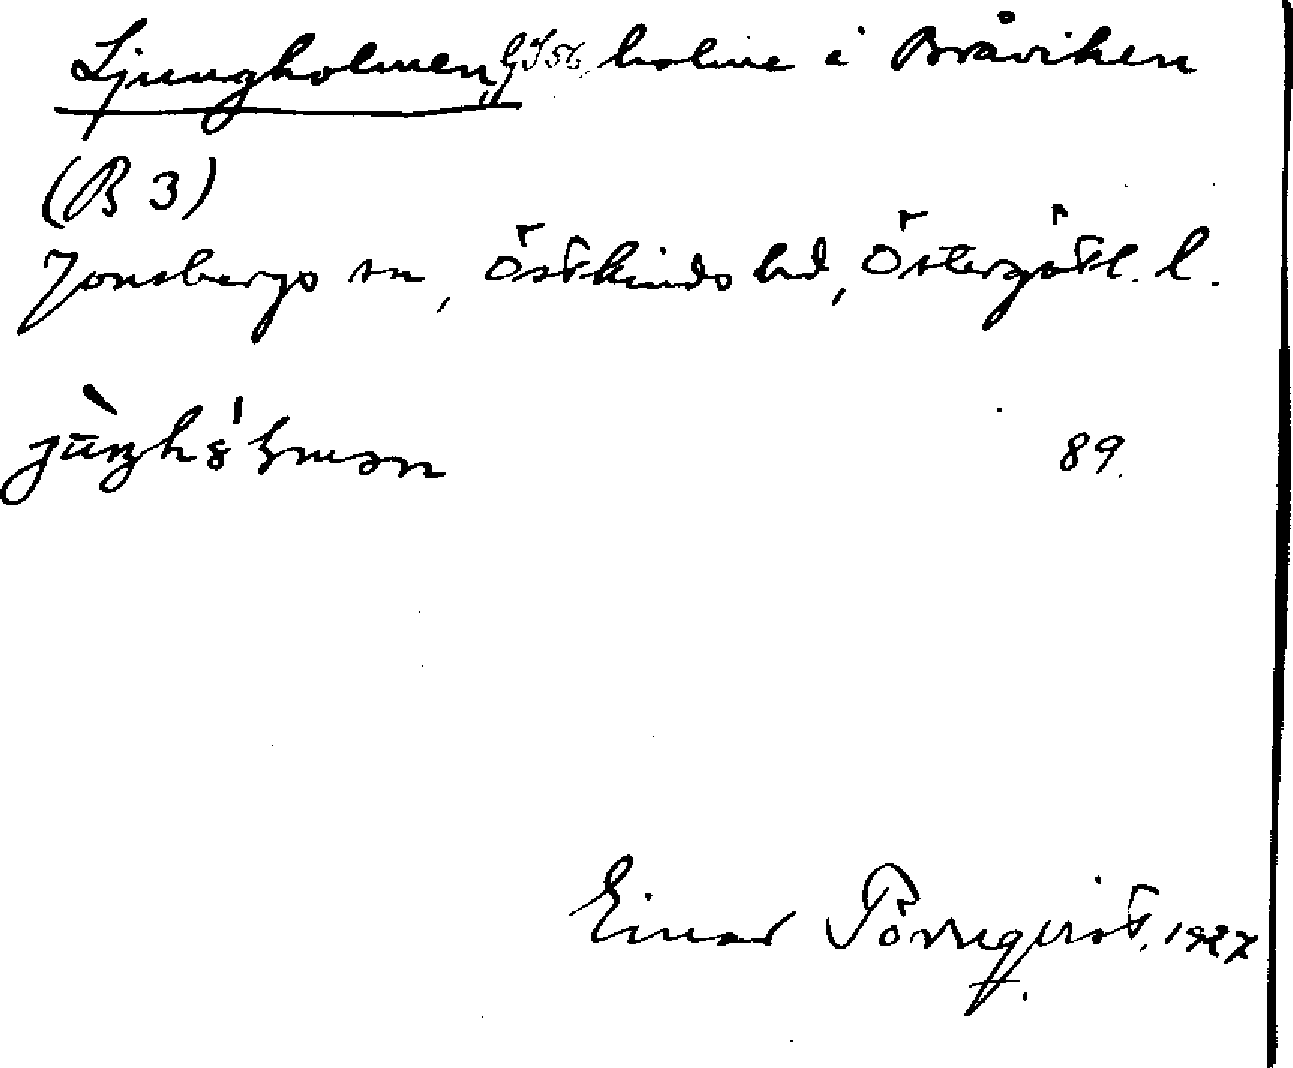 Ljungholmen, holme i Bråviken
(B 3)
Jonsbergs sn, Östkinds hd, Östergötl. l.
89.
Einar Törnqvist. 1927